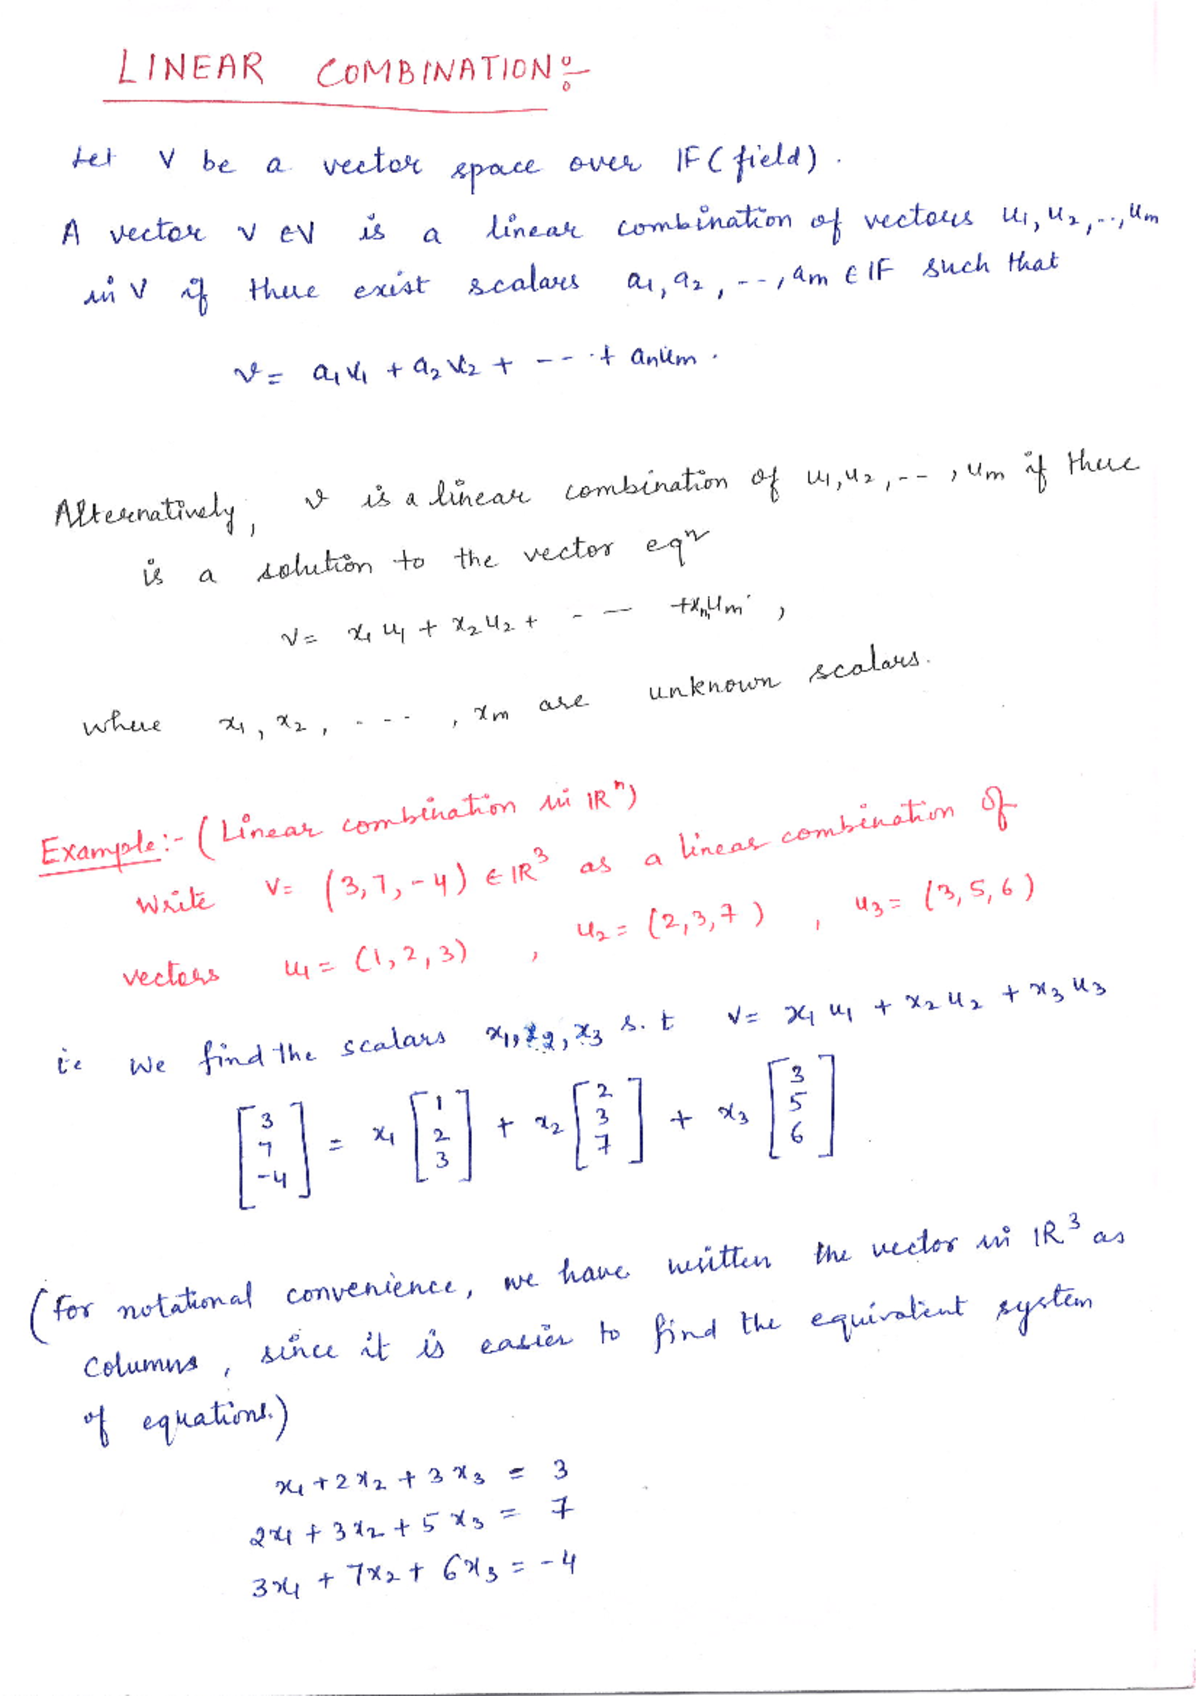 LINEAR COMBINATION:-
Let V be a vector space over IF (field).
A vector v ∈ V is a linear combination of vectors u1, u2, --, um
in V if there exist scalars a1, a2, --, am ∈ IF such that
v = a1u1 + a2u2 + -- - + amum.
Alternatively, v is a linear combination of u1, u2, --, um if there
is a solution to the vector eqn
v = x1u1 + x2u2 + - — +xmum,
where x1, x2, - - - -, xm are unknown scalars.
Example:- (Linear combination in IRⁿ)
Write v = (3,7,-4) ∈ IR³ as a linear combination of
vectors u1 = (1,2,3), u2 = (2,3,7), u3 = (3,5,6)
ie we find the scalars x1, x2, x3 s.t v = x1u1 + x2u2 + x3u3
[3 7 -4] = x1 [1 2 3] + x2 [2 3 7] + x3 [3 5 6].
(For notational convenience, we have written the vector in IR³ as
columns, since it is easier to find the equivalent system
of equations.)
x1 + 2x2 + 3x3 = 3
2x1 + 3x2 + 5x3 = 7
3x1 + 7x2 + 6x3 = -4